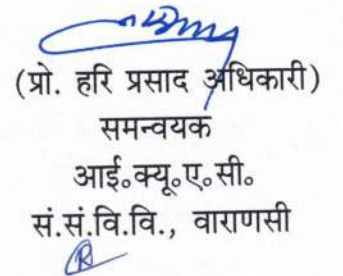 (प्रो. हरि प्रसाद अधिकारी)
समन्वयक
आई॰क्यू॰ए॰सी॰
सं.सं.वि.वि., वाराणसी